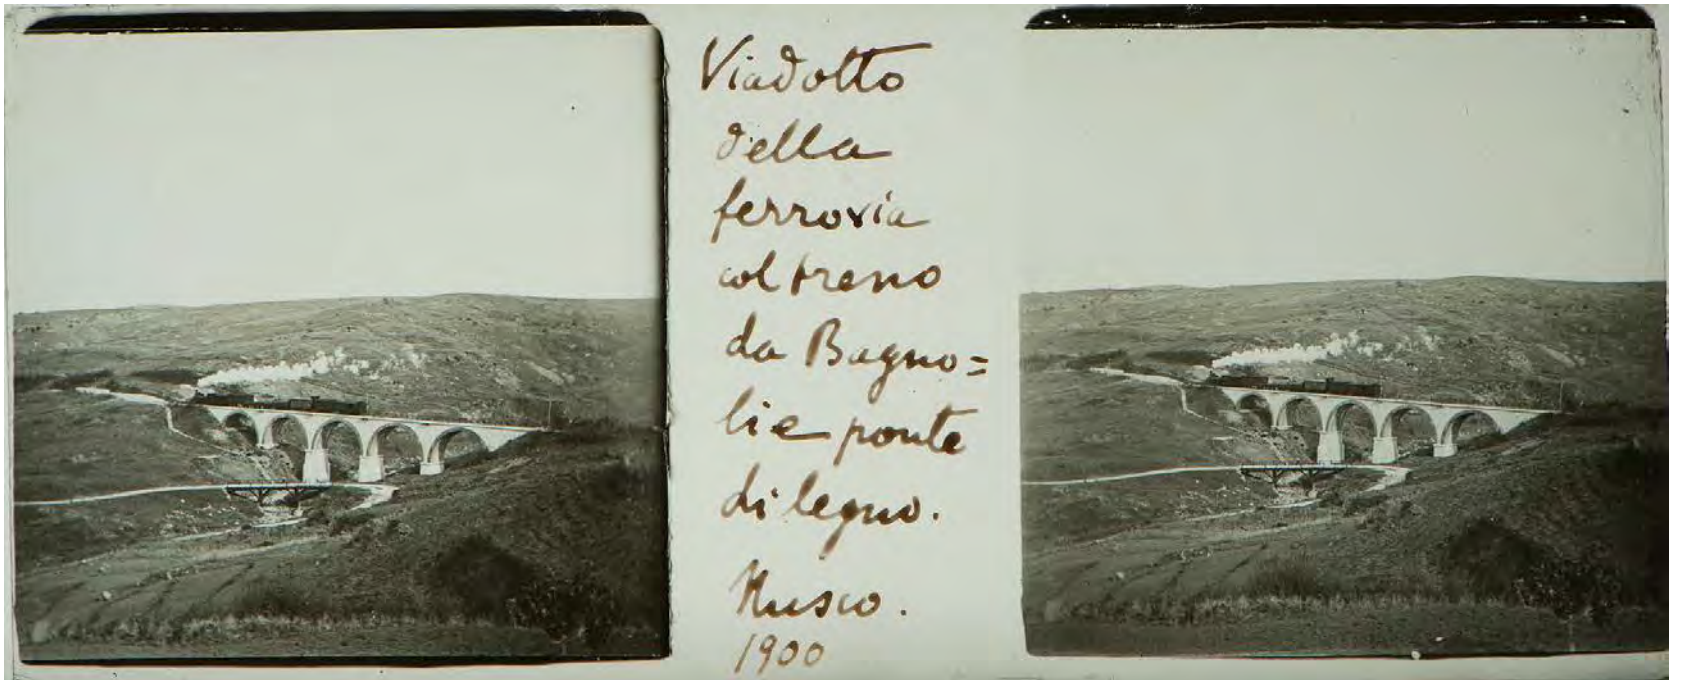 Viadotto
della
ferrovia
col treno
da Bagno=
li e ponte
di legno.
Nusco.
1900